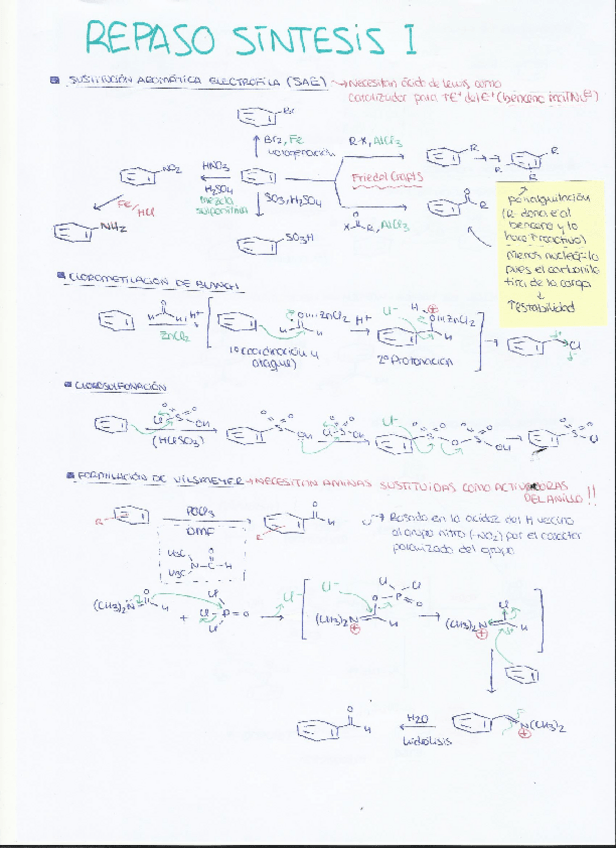 REPASO SÍNTESIS I
SUSTITUCIÓN AROMÁTICA ELECTRÓFILA (SAE) → Necesitan ácido de Lewis como
catalizador para ↑E+ del E+ (benceno
Br
Br2, Fe
Halogenación
R-X, AlCl3
R
R
R
NO2
HNO3
H2SO4
Mezcla
sulfonítrica
Friedel Crafts
Fe/HCl
SO3, H2SO4
O
X R, AlCl3
O
R
NH2
SO3H
(R dona e- al
benceno y lo
hace ↑reactivo)
menos nucleófilo
pues el carbonilo
tira de la carga
↓
↑Estabilidad
CLOROMETILACIÓN DE BLANCH
O
H H
H+
ZnCl2
O ZnCl2
H
H
H+
Cl-
H
O ZnCl2
H
Cl
1º coordinación y
ataque
2º Protonación
CLOROSULFONACIÓN
Cl S OH
(HClSO3)
O O
S
OH
Cl S OH
Cl-
O O
S O S
OH
O O
S Cl
FORMILACIÓN DE VILSMEYER → NECESITAN AMINAS SUSTITUIDAS COMO ACTIVADORAS
DEL ANILLO!!
R
POCl3
DMF
O
H
R
H3C
H3C
N-C-H
O
Basado en la acidez del H vecino
al grupo nitro (-NO2) por el carácter
polarizado del grupo
(CH3)2N
O
H
+
Cl
Cl P=O
Cl
Cl-
Cl-
Cl Cl
O-P=O
(CH3)2N
H
Cl
(CH3)2N
H
O
H
H2O
Hidrólisis
N(CH3)2